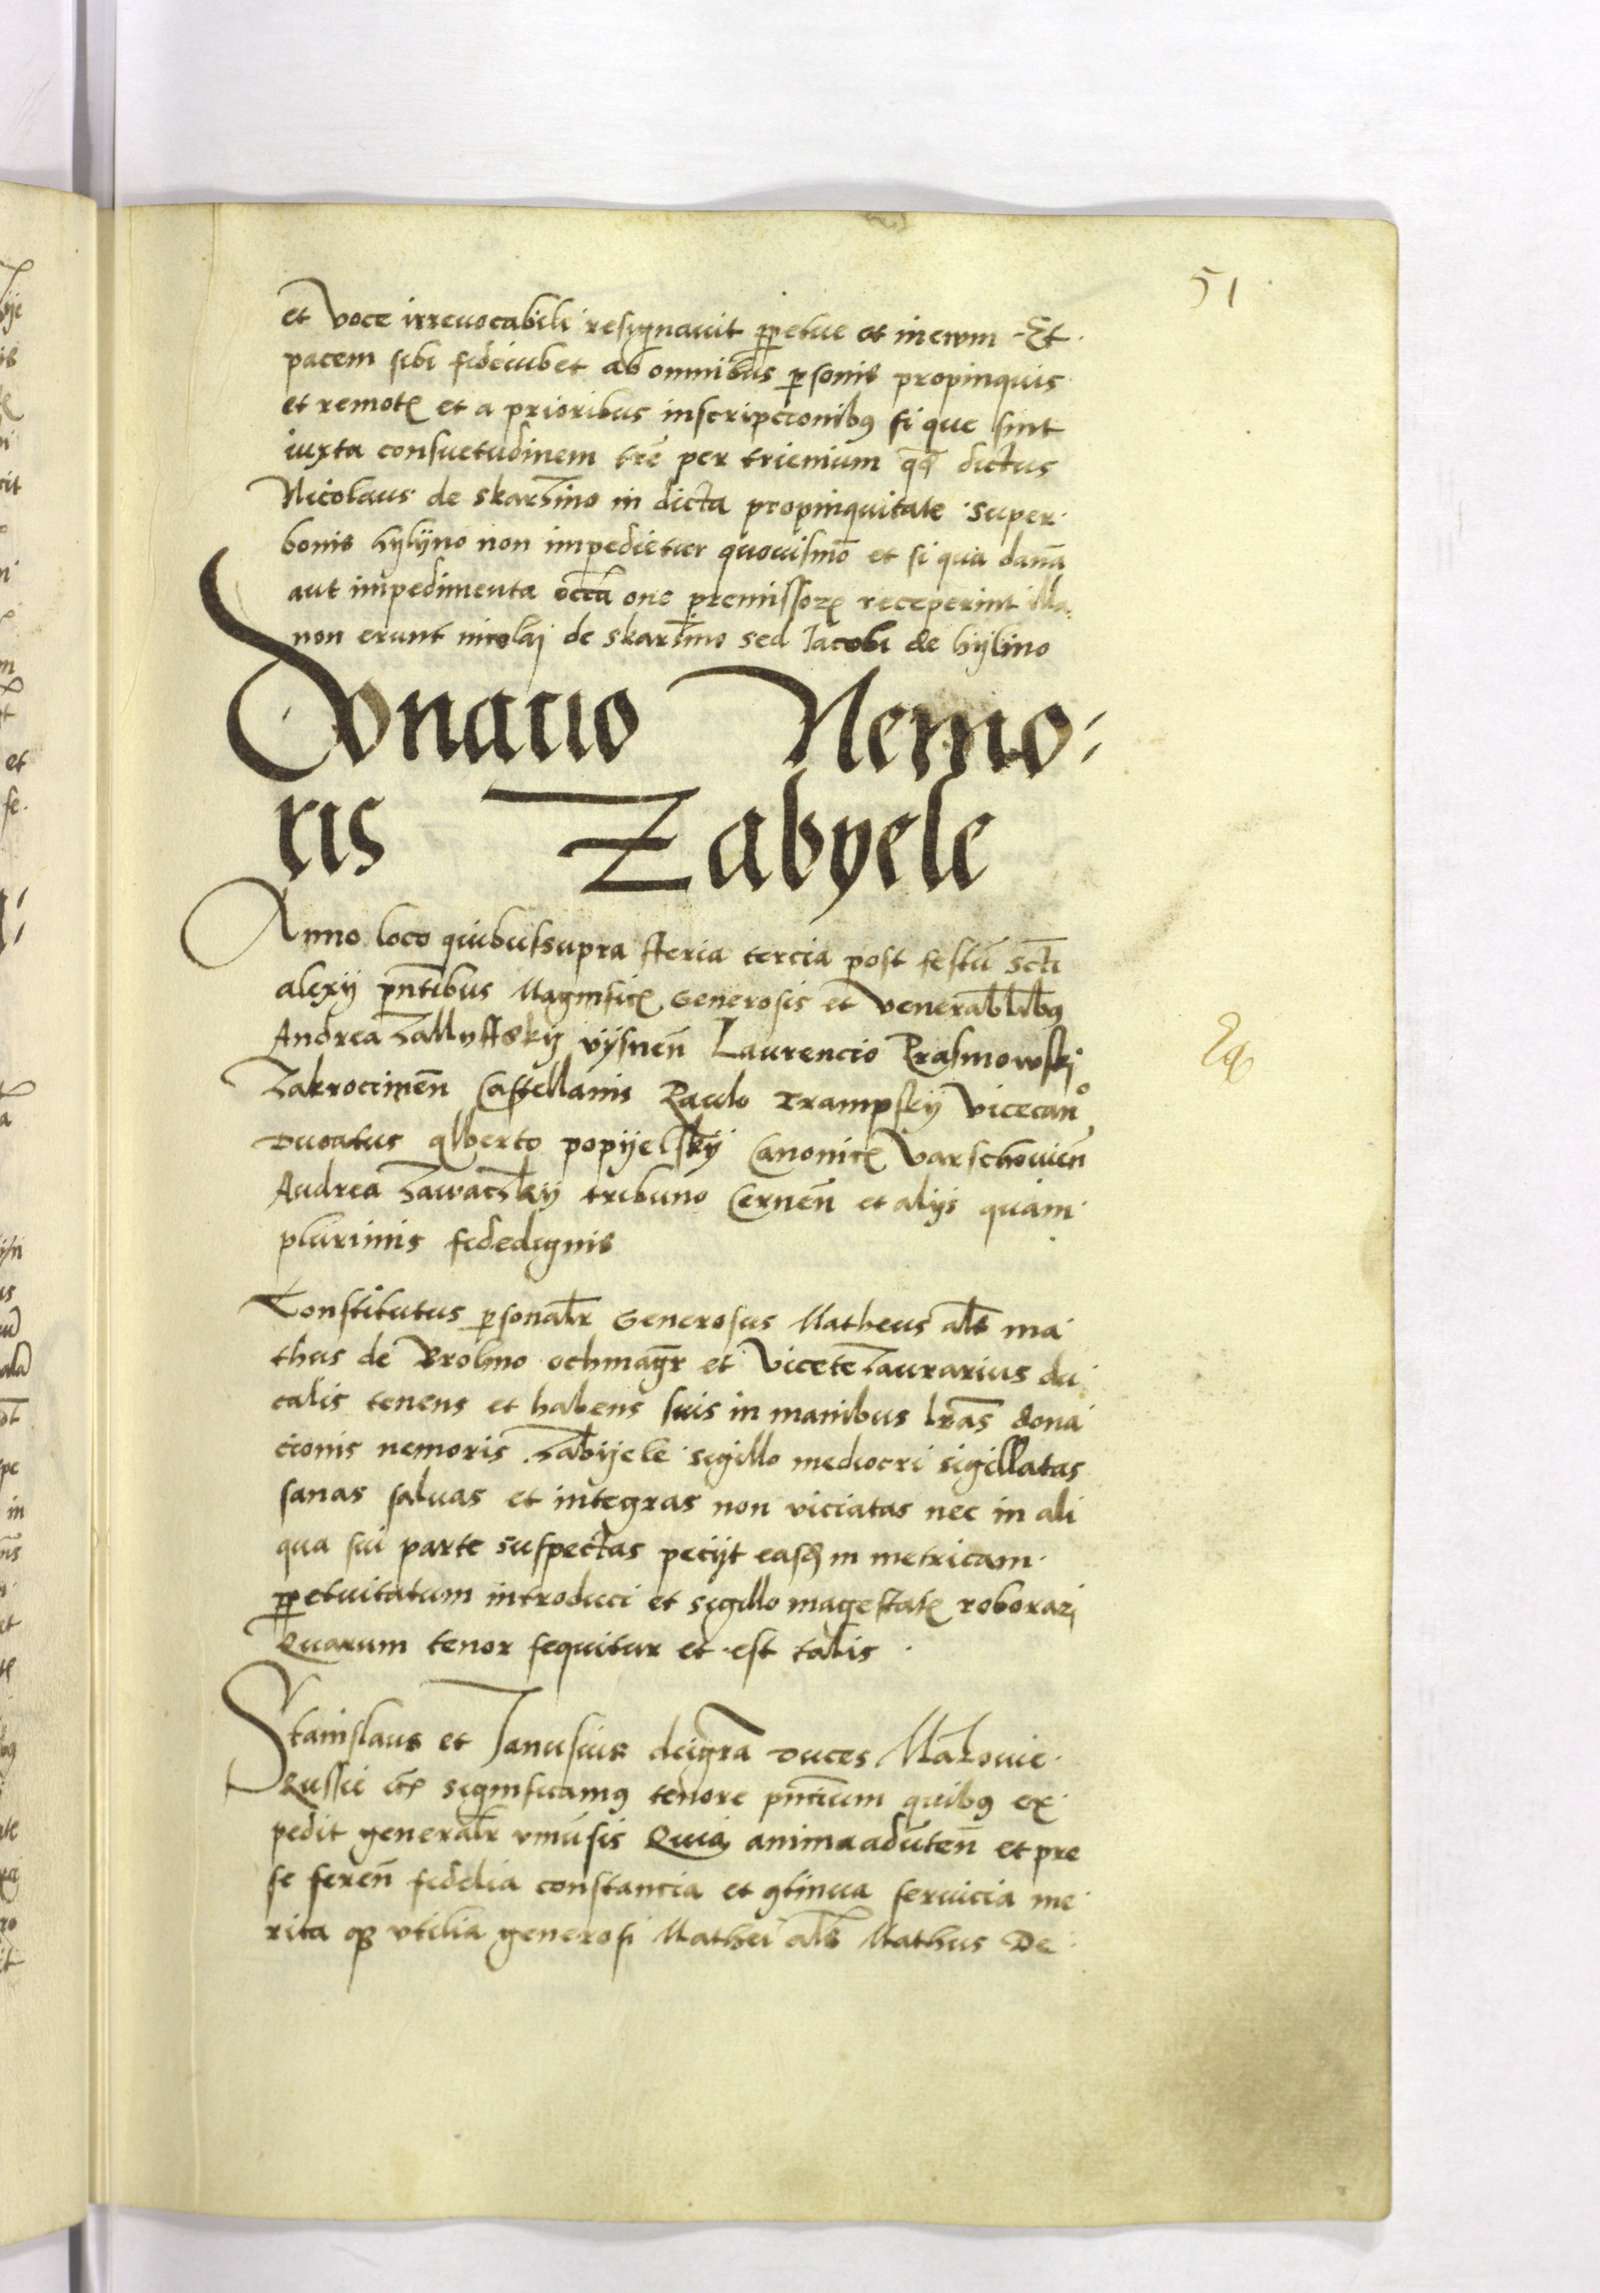 51
et Voce irreuocabili resignauit ꝑpetue et in ewm Et
pacem sibi fideiubet ab omnibus ꝑsonis propinquis
et remotꝭ et a prioribus inscripcionibꝰ si que sint
iuxta consuetudinem trē per trienium dictus
Nicolaus de skarzino in dicta propinquitate super
bonis hylijno non impedietur quouismō et si qua danā
aut impedimenta occā premissoꝝ receperint illa
non erunt nicolaj de skarzino sed Jacobi de hijlino
Donacio Nemo
ris Zabyele
Anno loco quibussupra fferia tercia post festū scti
alexij pn̄tibus Magnificꝭ Generosis et Venerabilibꝰ
Andrea Zallusskij vijsnen̄ Laurencio Prasmowskj
Zakroczinen̄ Castellanis Paulo Trampskij Vicecanᵒ
Ducatus alberto popijelskij Canonicꝭ Varschouien̄
Andrea Zawaczkij tribuno Cernen̄ et alijs quam
plurimis fidedignis
Constitutus ꝑsonalr Generosus Matheus als ma
thus de Brolino ochmagr et Vicetezaurarius du
calis tenens et habens suis in manibus lrās dona
cionis nemoris Zabijele sigillo mediocri sigillatas
sanas saluas et integras non viciatas nec in ali
qua sui parte suspectas pecijt easdꝫ in metricam
ꝑpetuitatum introduci et sigillo magestatꝭ roborarj
Quarum tenor sequitur et est talis
Stanislaus et Janusius deigrā Duces Mazouie
Russie etcꝭ significamꝰ tenore pn̄cium quibꝰ ex
pedit generalr vniūsis Quia animaaduten̄ et pre
se feren̄ fidelia constancia et ꝯtinua seruicia me
rita qꝫ vtilia generosi Mathei als Mathus De